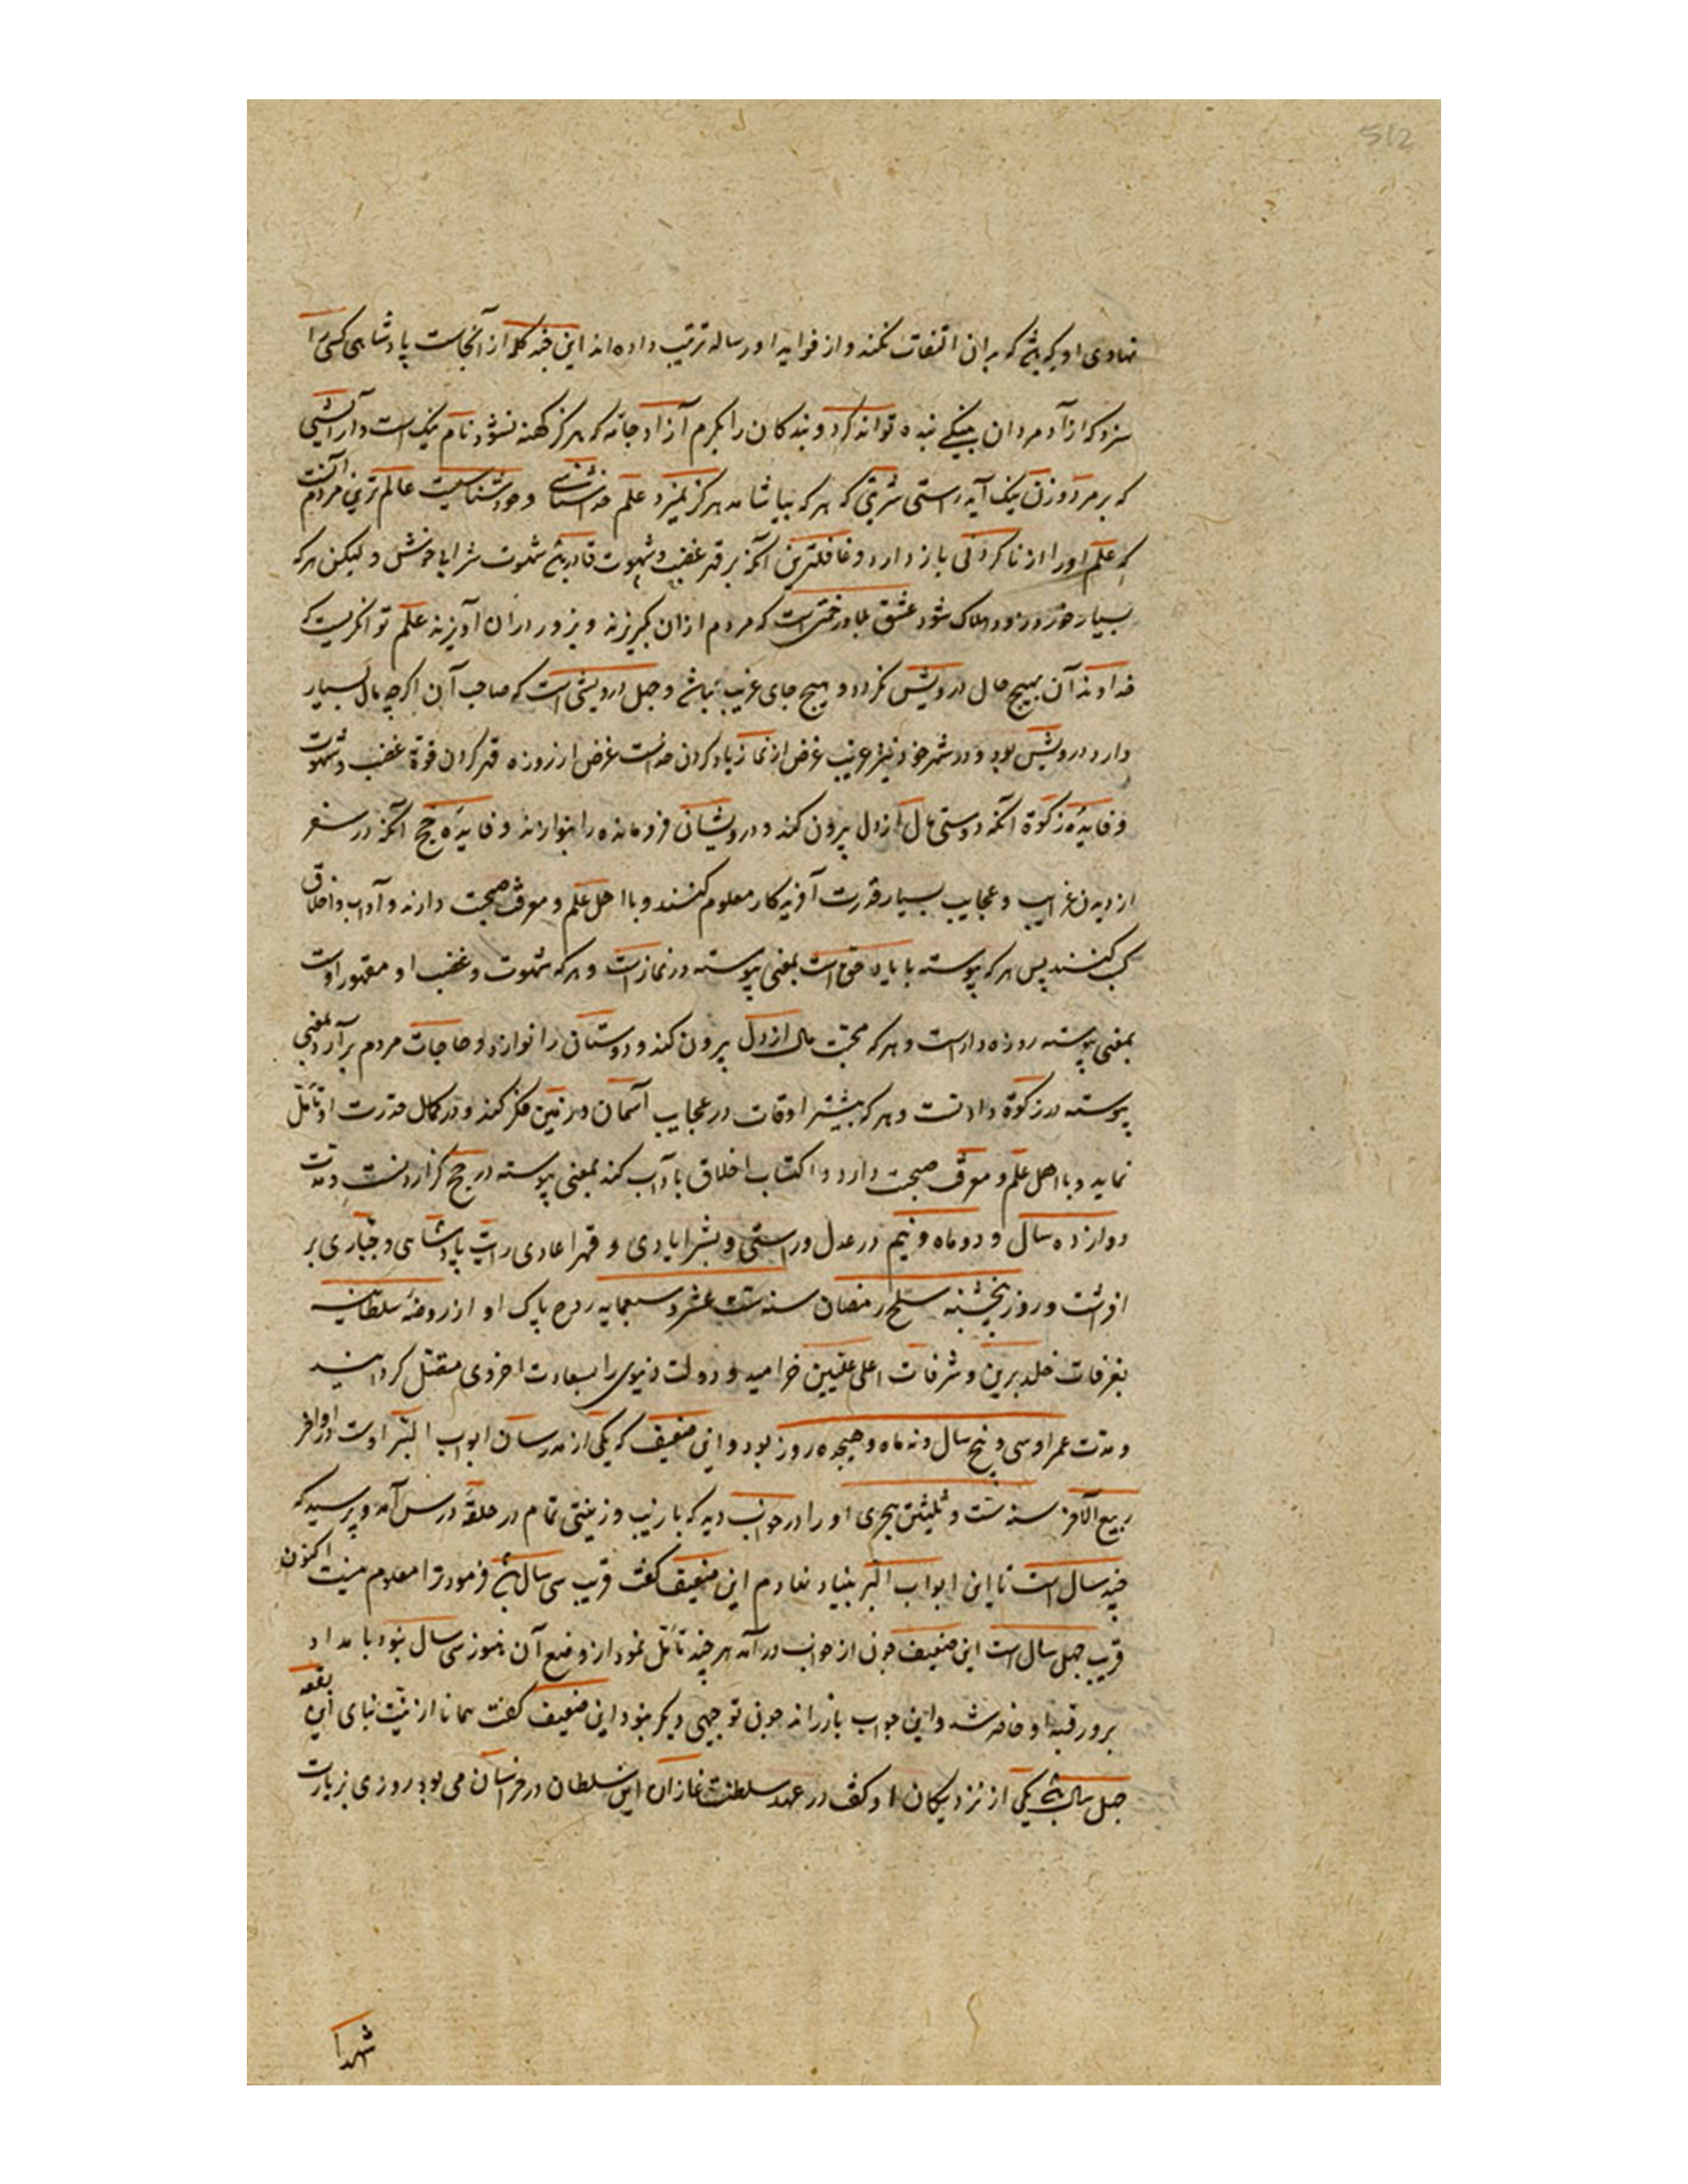 512
نهادی او که باشد که بدان التفات نکنند و از فواید او رساله ترتیب داده اند این چند کلمه از آنجاست پادشاهی کسی را
سزد که از آد مردان به نیکی بنده تواند کرد و بندکان را بکرم آزاد جامه که هرکز کهنه نشود نام نیک است و آرایشی
که بر مرد و زن نیک آید راستی شربتی که هر که بیاشامد هرکز نمیرد علم خداشناسی و خودشناسیست عالم ترین مردم آنست
که علم او را از ناکردنی باز دارد و غافلترین آنکه بر قهر غضب و شهوت قادر باشد شهوت شرابا خوشش و لیکن هر که
بسیار خورد زود هلاک شود عشق بلا درختی است که مردم ازان بکریزند و بزور دران آویزند علم توانکریست که
خداوند آن بهیچ حال درویش نکردد و بهیچ جای غریب نباشد و جهل درویشی است که صاحب آن اکرچه مال بسیار
دارد درویش بود و در شهر خود نیز غریب غرض از نماز یاد کردن خداست غرض از روزه قهر کردن قوة غضب و شهوت
و فایده زکوة آنکه دوستی مال از دل بیرون کند و درویشان فرومانده را بنوازند و فایده حج آنکه در سفر
از دیدن غرایب و عجایب بسیار قدرت آفریدکار معلوم کنند و با اهل علم و معرفت صحبت دارند و آداب و اخلاق
کسب کنند پس هر که پیوسته با یاد حق است بمعنی پیوسته در نماز است و هر که شهوت و غضب او مقهور اوست
بمعنی پیوسته روزه دار است و هر که محبت مال از دل بیرون کند و دوستان را نوازد و حاجات مردم بر آرد بمعنی
پیوسته در زکوة دادنست و هر که بیشتر اوقات در عجایب آسمان و زمین فکر کند و در کمال قدرت او تأمل
نماید و با اهل علم و معرفت صحبت دارد و اکتساب اخلاق با آداب کند بمعنی پیوسته در حج کزاردنست و مدت
دوازده سال و دو ماه و نیم در عدل و راستی و نشر ایادی و قهر اعادی رایت پادشاهی و جباری بر
افراشت و روز پنجشنبه سلخ رمضان سنه ست عشر و سبعمایه روح پاک او از روضه سلطانیه
بغرفات خلد برین و شرفات اعلی علیین خرامید و دولت دنیوی را بسعادت اخروی متصل کردانید
و مدت عمر او سی و پنج سال و نه ماه و هیجده روز بود و این ضعیف که یکی از مدرسان ابواب البر اوست در اواخر
ربیع الآخر سنه ست و ثلیثن هجری او را در خواب دید که با زیب و زینتی تمام در حلقه درس آمد و پرسید که
چند سال است تا این ابواب البر بنیاد نهادم این ضعیف کفت قریب سی سال باشد فرمود ترا معلوم نیست اکنون
قریب چهل سال است این ضعیف چون از خواب در آمد هر چند تأمل نمود از وضع آن هنوز سی سال نبود بامداد
بر ورقبه او حاضر شد و این جواب باز راند چون توجیهی دیکر نبود این ضعیف کفت همانا از نیت بنای این بقعه
چهل سال باشد یکی از نزدیکان او کفت در عهد سلطنت غازان این سلطان در خراسان می بود روزی بزیارت
شهدا